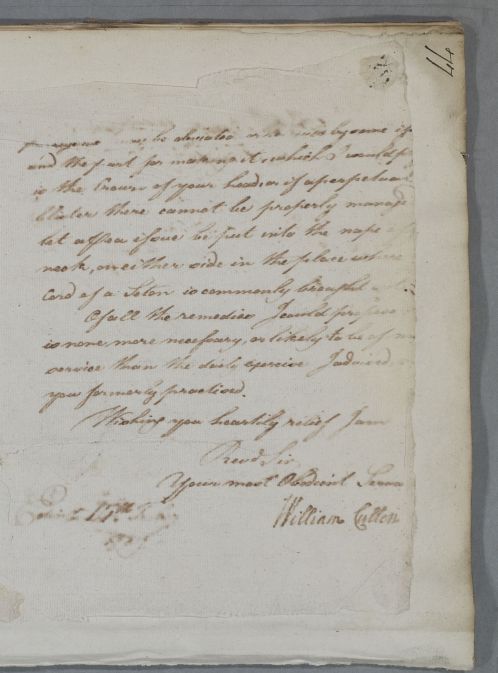 44
may be
and the part for making it, which I would p
is the Crown of your head or if a perpetual
blister there cannot be properly manage
let a Pea issue be put into the nape
neck, on either side in the place where
Cord of a Seton is commonly brought
Of all the remedies I could propose
is none more necessary, or likely to be of m
service than the daily exercise I advised
you formerly practised.
Wishing you heartily relief I am
Revd Sir
Your most Obedient Serva
William Cullen
17th